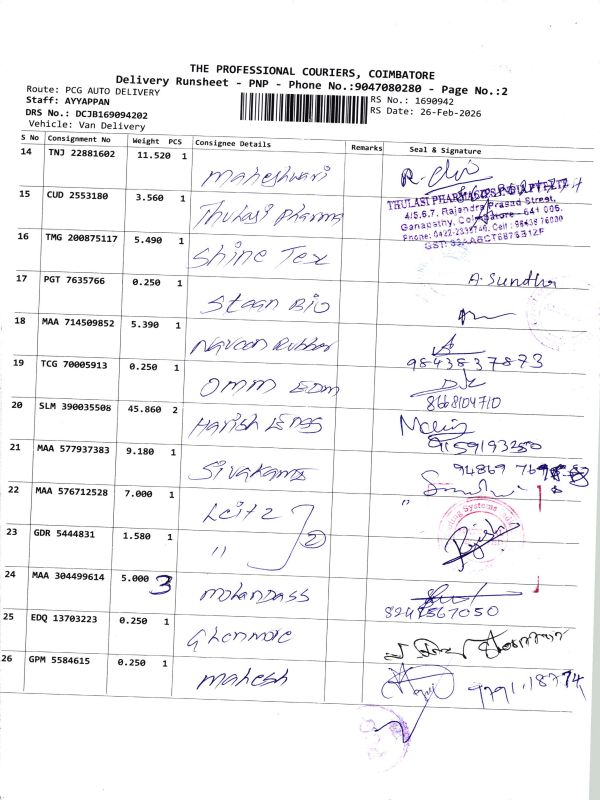 THE PROFESSIONAL COURIERS, COIMBATORE
Delivery Runsheet - PNP - Phone No.:9047080280 - Page No.:2
Route: PCG AUTO DELIVERY
Staff: AYYAPPAN
DRS No.: DCJB169094202
Vehicle: Van Delivery
RS No.: 1690942
RS Date: 26-Feb-2026
S No Consignment No Weight PCS Consignee Details Remarks Seal & Signature
14 TNJ 22881602 11.520 1 Maheshwari
15 CUD 2553180 3.560 1 Thulasi Pharma
THULASI PHARMACIES INDIA PVT LTD
4/5,6,7, Rajendra Prasad Street,
Ganapathy, Coimbatore - 641 006.
16 TMG 200875117 5.490 1 Shine Tex
17 PGT 7635766 0.250 1 Staan Bio A. Sundha
18 MAA 714509852 5.390 1 Naveen Rubber
19 TCG 70005913 0.250 1 Omm EDM 9843837873
20 SLM 390035508 45.860 2 Harish 8668104710
21 MAA 577937383 9.180 1 Sivakami 9159193250
22 MAA 576712528 7.000 1 Leitz 2
23 GDR 5444831 1.580 1 "
24 MAA 304499614 5.000 3 Mohandass
25 EDQ 13703223 0.250 1 Glenmore
26 GPM 5584615 0.250 1 Mahesh